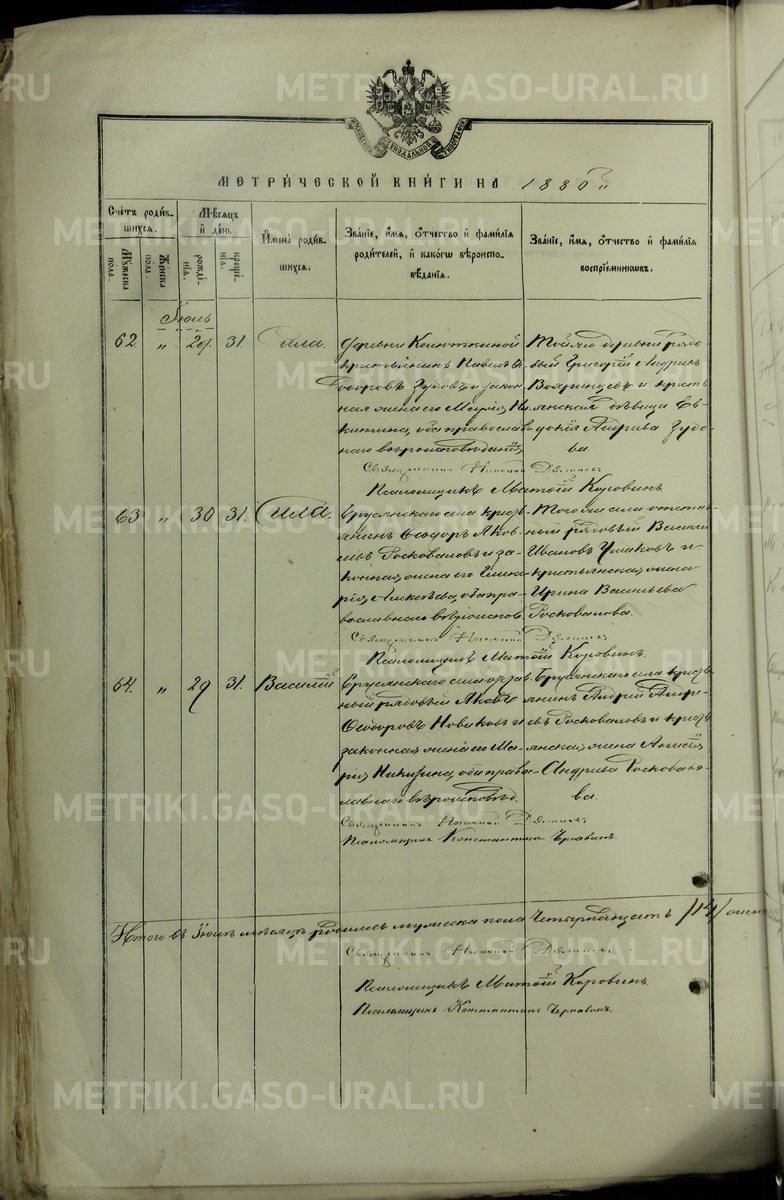 METRIKI.GASO-URAL.RU
МОСКОВСКОЙ СѴНОДАЛЬНОЙ ТИПОГРАФІИ
МЕТРИ́ЧЕСКОЙ КНИ́ГИ НА 1880 й
Сче́тъ роди́в-
шихсѧ.
Мꙋ́жеска
пола.
Же́нска
пола.
Мѣ́сѧцъ
и҆ де́нь
рожде́-
нїѧ.
креще́-
нїѧ.
И҆мена̀ роди́в-
шихсѧ.
Зва́нїе, и҆́мѧ, ѻ҆́тчество и҆ фами́лїѧ
роди́телей, и҆ како́гѡ вѣ́роиспо-
вѣ́данїѧ.
Зва́нїе, и҆́мѧ, ѻ҆́тчество и҆ фами́лїѧ
воспрїе́мникѡвъ.
Іюль
62. „ 29. 31. Сила. деревни
крестьянинъ Павелъ Ѳе-
доровъ Зудовъ и закон-
ная жена его Марія Ни-
китина, оба православ-
наго вѣроисповѣданія
Той же деревни рядо-
вый Григорій Андріевъ
и кресть-
янская дѣвица Ев-
докія Андріева Зудо-
ва.
Священникъ Николай
Псаломщикъ Матѳій Коровинъ.
63 „ 30 31. Сила. Брусянскаго села кресть-
янинъ Ѳеодоръ Яков-
левъ Росковаловъ и за-
конная жена его Глике-
рія Алексѣева, оба пра-
вославнаго вѣроиспов.
Того же села отстав-
ный рядовый Васили
Ивановъ Ушаковъ и
крестьянская жена
Ирина Васильева
Росковалова.
Священникъ Николай
Псаломщикъ Матѳій Коровинъ.
64. „ 29 31. Василій Брусянскаго села отстав-
ный рядовый Яковъ
Ѳеодоровъ Новиковъ и
законная жена его Ма-
рія Никитина, оба право-
славнаго вѣроисповѣд.
Брусянскаго села кресть-
янинъ Андрей Андре-
евъ Росковаловъ и кресть-
янская жена Анисія
Андріева Росковало-
ва.
Священникъ Николай
Псаломщикъ Константинъ Чернавинъ.
Итого въ Іюлѣ мѣсяцѣ родилось мужеска пола четырнадцать /14/
Священникъ Николай
Псаломщикъ Матѳій Коровинъ
Псаломщикъ Константинъ Чернавинъ.